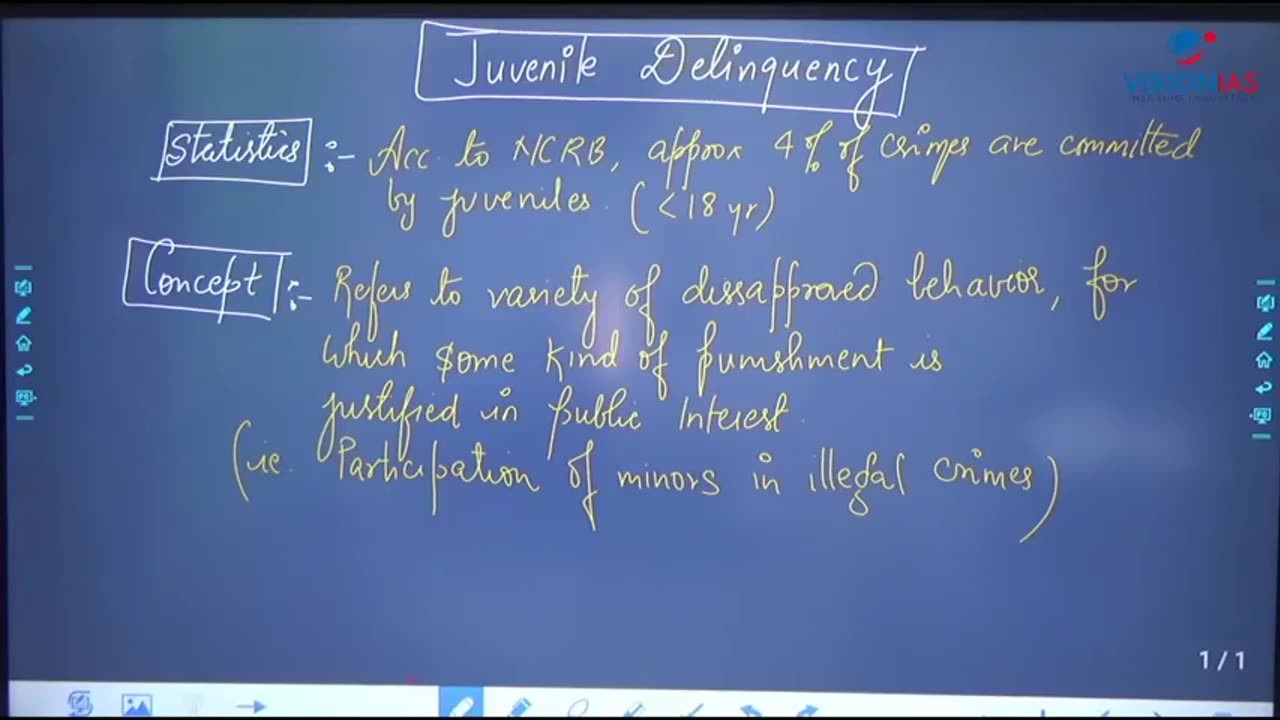 Juvenile Delinquency
VISIONIAS
Statistics :- Acc. to NCRB, approx 4% of crimes are committed
by juveniles. (<18 yr)
Concept :- Refers to variety of dissapproved behavior, for
which some kind of punishment is
justified in public Interest.
(ie. Participation of minors in illegal crimes)
1/1